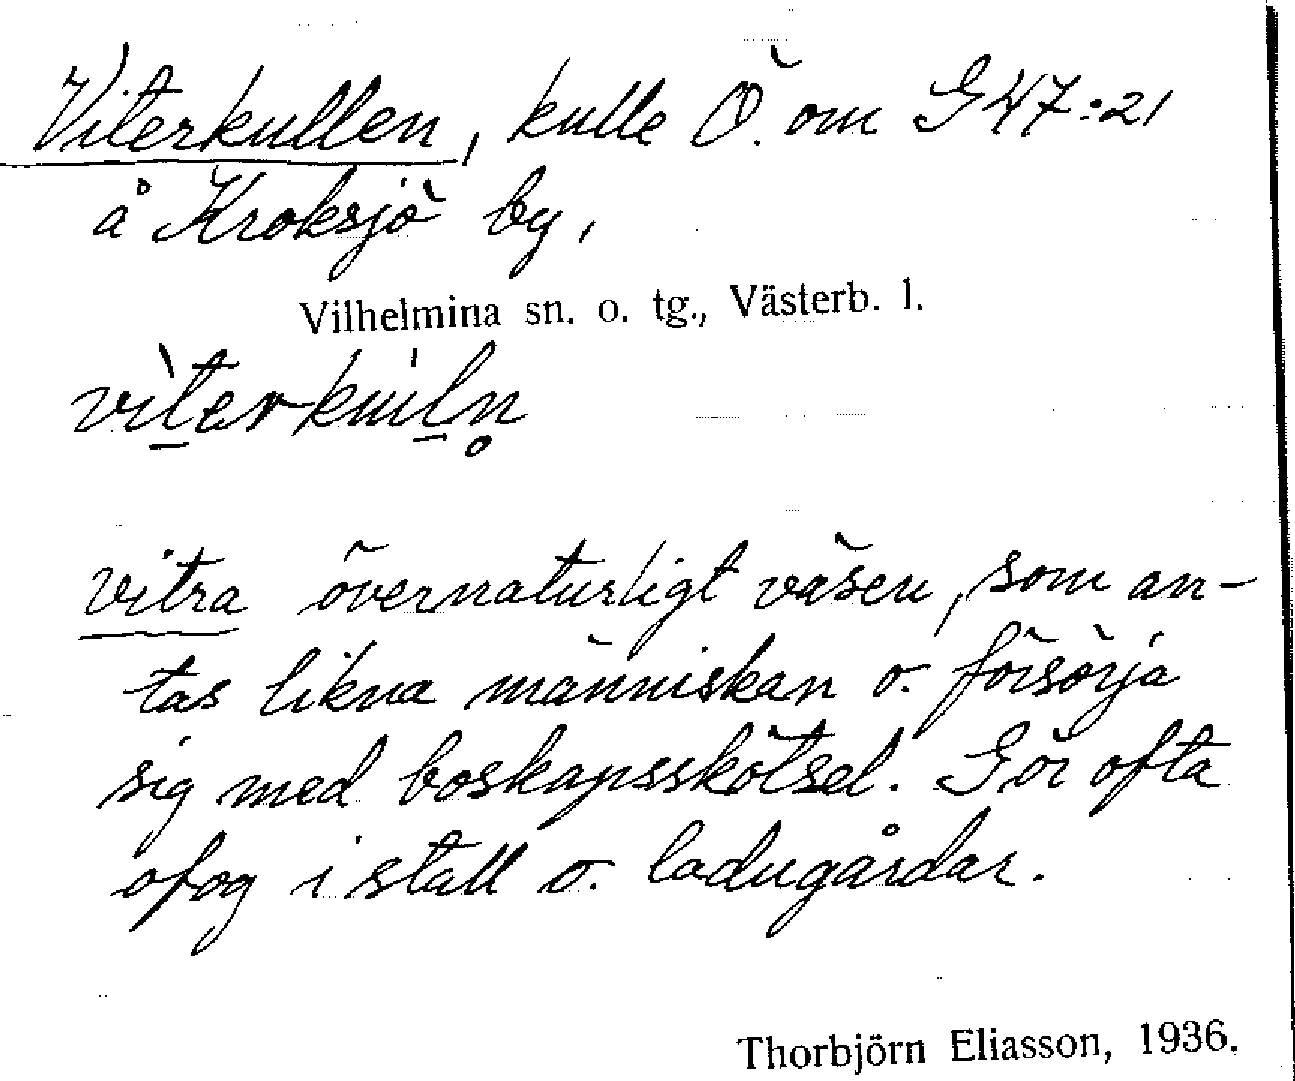 Viterkullen, kulle Ö. om G 47:21
å Kroksjö by,
Vilhelmina sn. o. tg., Västerb. l.
vìterkúln̥
vitra övernaturligt väsen, som an-
tas likna människan o. försörja
sig med boskapsskötsel. Gör ofta
ofog i stall o. ladugårdar.
Thorbjörn Eliasson, 1936.